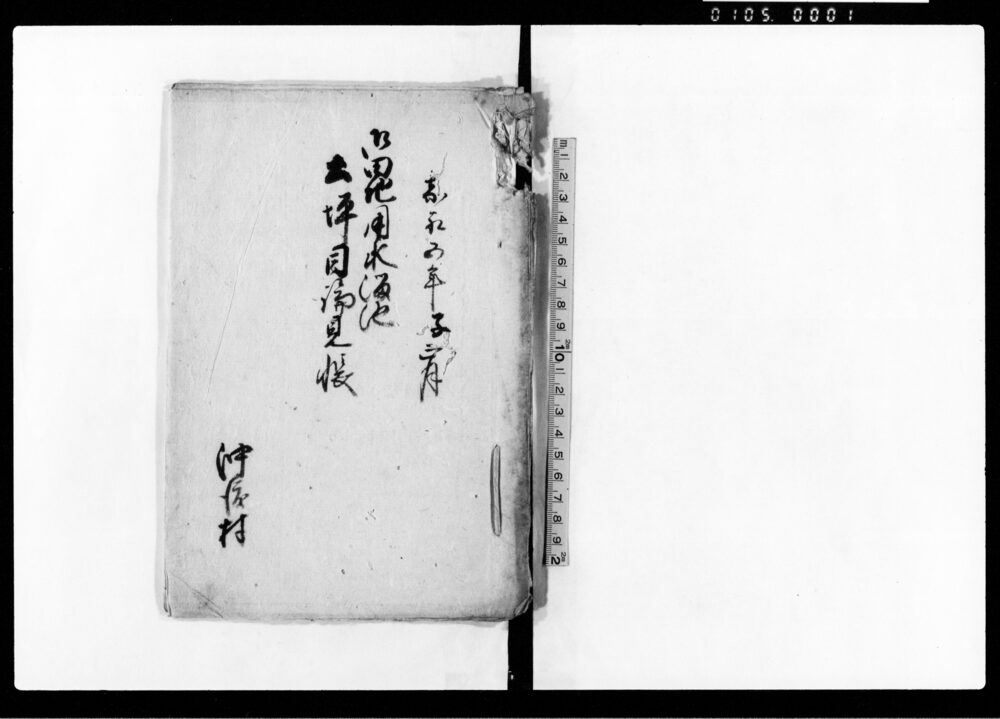 0105.0001
嘉永五年子二月
御田地用水溜池
土坪目論見帳
沖村
m 1 2 3 4 5 6 7 8 9 10 1 2 3 4 5 6 7 8 9 2